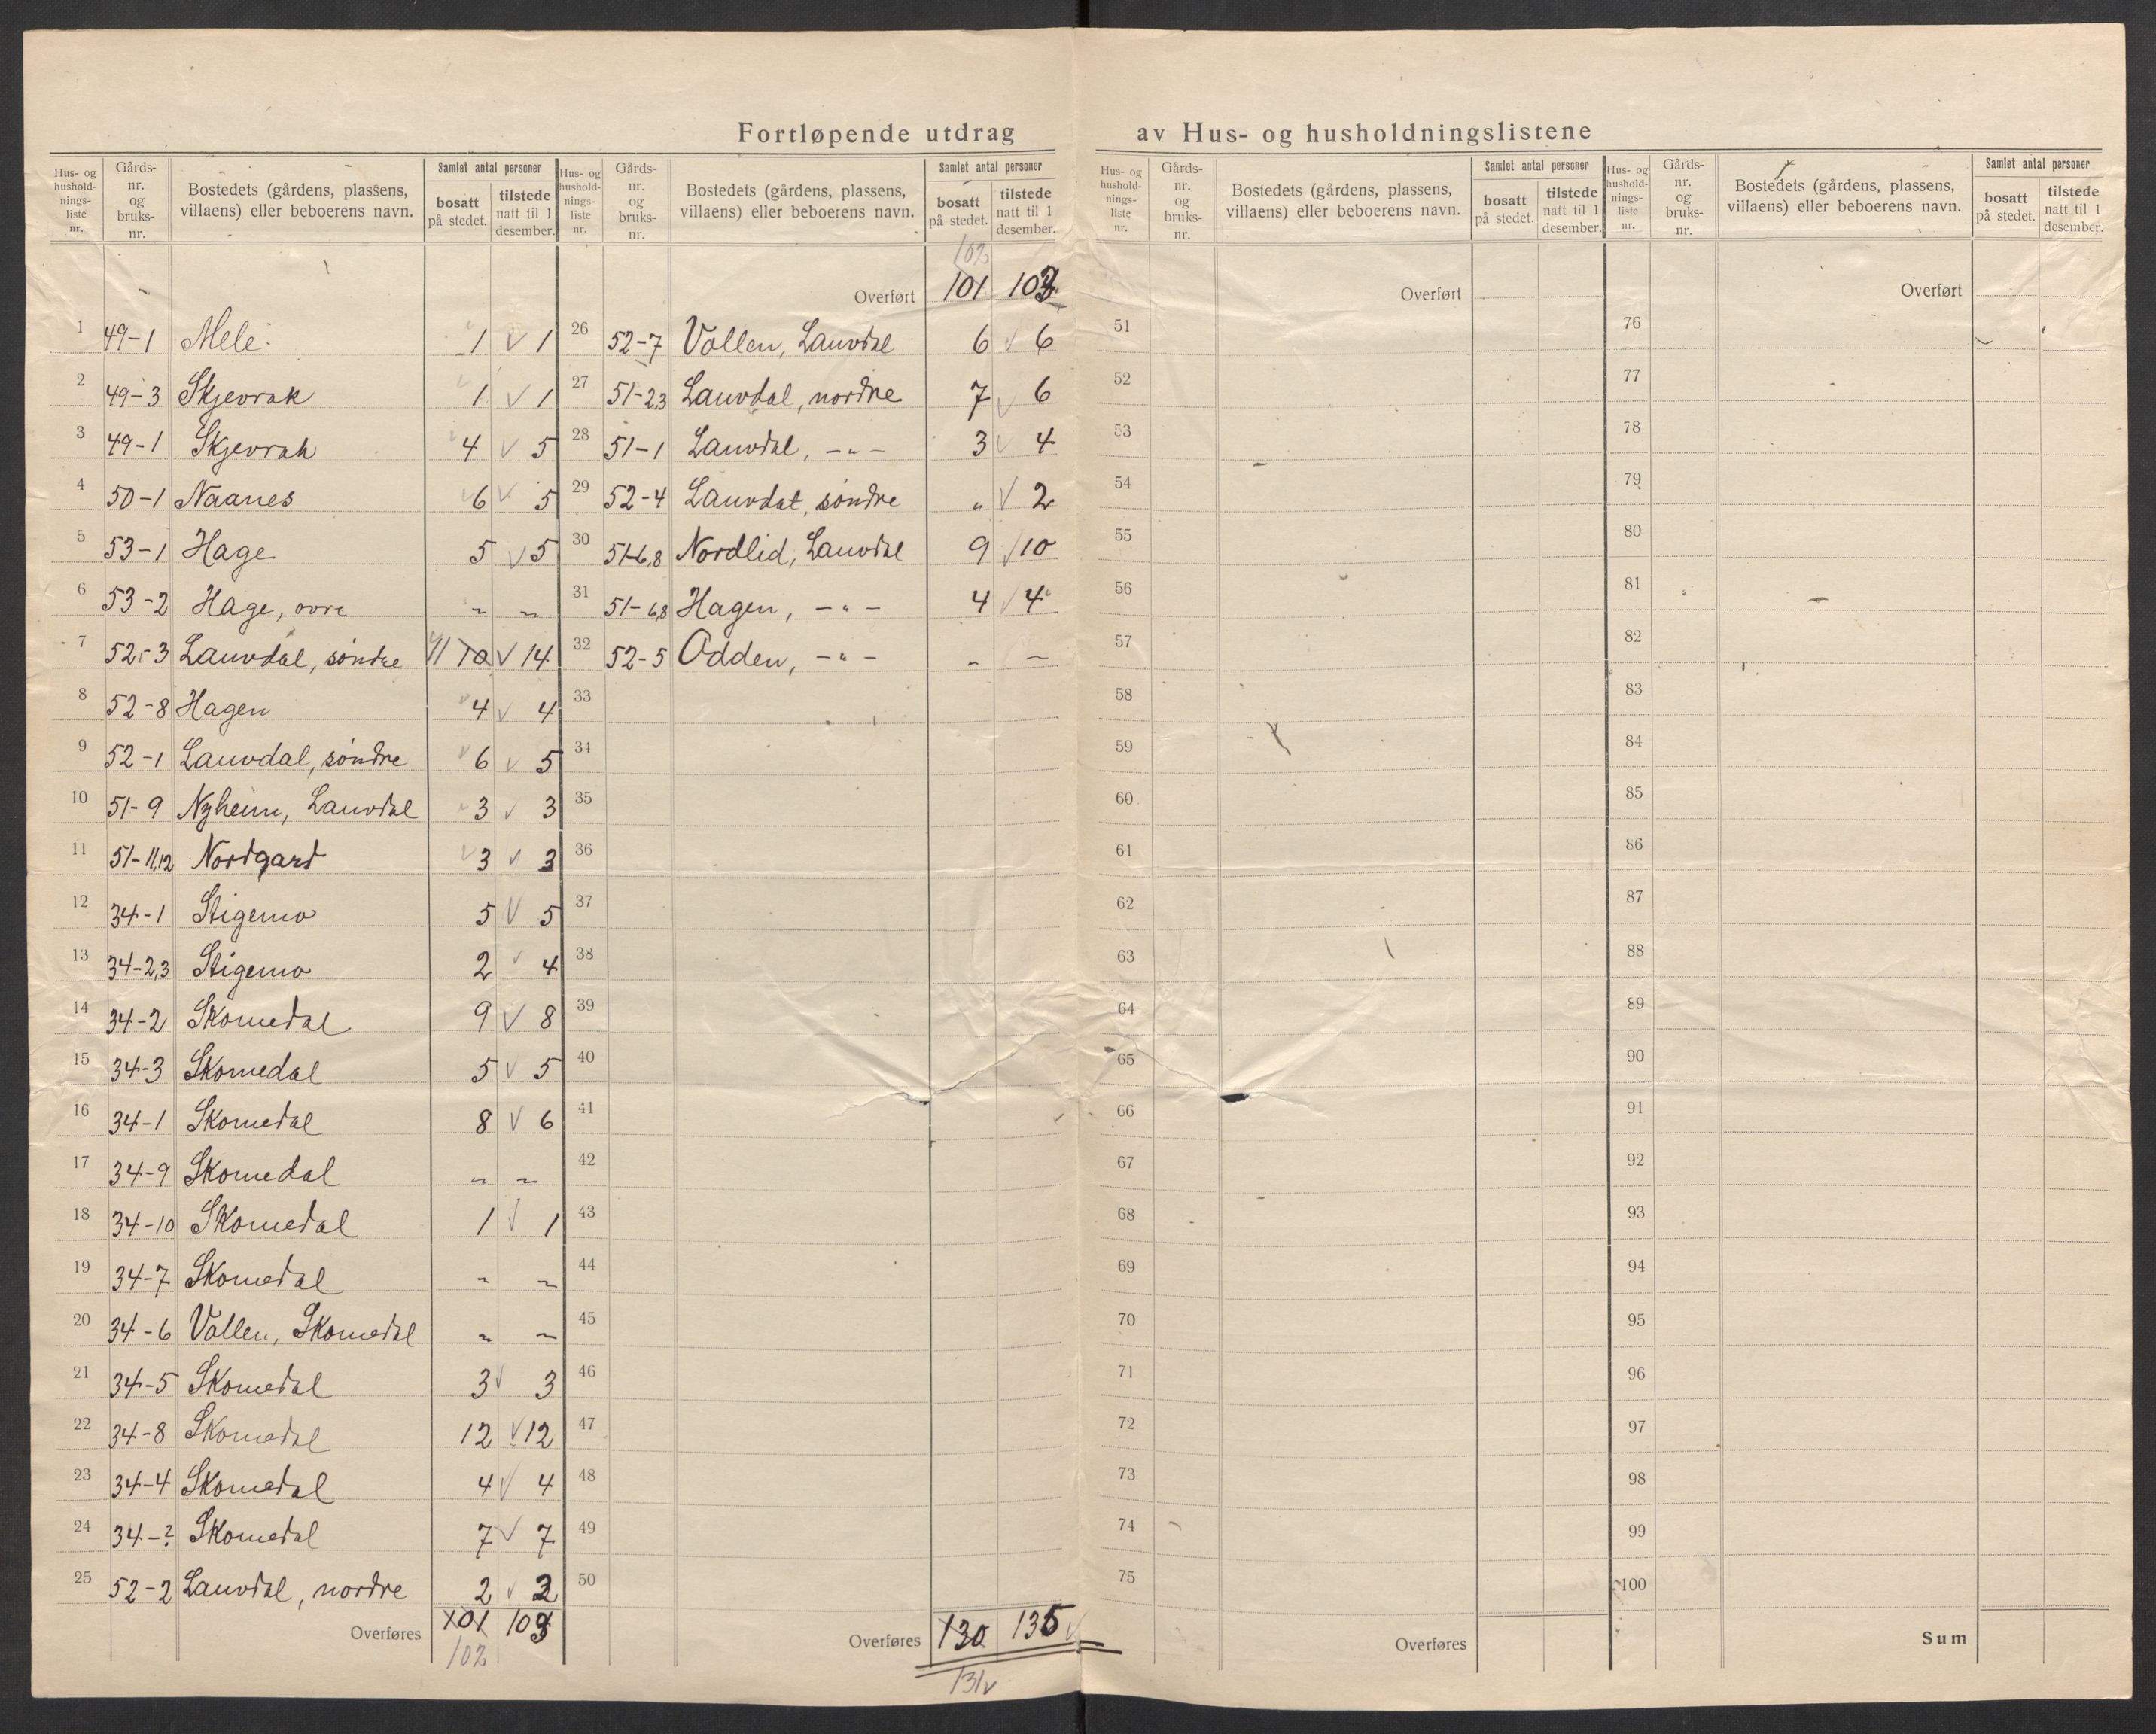 Fortløpende utdrag av Hus- og husholdningslistene
Hus- og hushold-nings-liste nr. Gårds-nr. og bruks-nr. Bostedets (gårdens, plassens, villaens) eller beboerens navn. Samlet antal personer bosatt på stedet. tilstede natt til 1 desember.
1 49-1 Mele 1 √ 1
2 49-3 Skjevrak 1 √ 1
3 49-1 Skjevrak 4 √ 5
4 50-1 Naanes 6 √ 5
5 53-1 Hage 5 √ 5
6 53-2 Hage, ovre " "
7 52-3 Lauvdal, søndre 11 10 √ 14
8 52-8 Hagen 4 √ 4
9 52-1 Lauvdal, søndre 6 √ 5
10 51-9 Nyheim, Lauvdal 3 √ 3
11 51-11,12 Nordgard 3 √ 3
12 34-1 Stigemo 5 √ 5
13 34-2,3 Stigemo 2 √ 4
14 34-2 Skomedal 9 √ 8
15 34-3 Skomedal 5 √ 5
16 34-1 Skomedal 8 √ 6
17 34-9 Skomedal " "
18 34-10 Skomedal 1 √ 1
19 34-7 Skomedal " "
20 34-6 Vollen, Skomedal " "
21 34-5 Skomedal 3 √ 3
22 34-8 Skomedal 12 √ 12
23 34-4 Skomedal 4 √ 4
24 34-? Skomedal 7 √ 7
25 52-2 Lauvdal, nordre 2 √ 2
Overføres 101 103
102
Hus- og hushold-nings-liste nr. Gårds-nr. og bruks-nr. Bostedets (gårdens, plassens, villaens) eller beboerens navn. Samlet antal personer bosatt på stedet. tilstede natt til 1 desember.
102
Overført 101 103
26 52-7 Vollen, Lauvdal 6 √ 6
27 51-2,3 Lauvdal, nordre 7 √ 6
28 51-1 Lauvdal, -"- 3 √ 4
29 52-4 Lauvdal, søndre " √ 2
30 51-6,8 Nordlid, Lauvdal 9 √ 10
31 51-6,8 Hagen, -"- 4 √ 4
32 52-5 Odden, -"- " "
33
34
35
36
37
38
39
40
41
42
43
44
45
46
47
48
49
50
Overføres 130 135 √
131 √
Hus- og hushold-nings-liste nr. Gårds-nr. og bruks-nr. Bostedets (gårdens, plassens, villaens) eller beboerens navn. Samlet antal personer bosatt på stedet. tilstede natt til 1 desember.
Overført
51
52
53
54
55
56
57
58
59
60
61
62
63
64
65
66
67
68
69
70
71
72
73
74
75
Overføres
Hus- og hushold-nings-liste nr. Gårds-nr. og bruks-nr. Bostedets (gårdens, plassens, villaens) eller beboerens navn. Samlet antal personer bosatt på stedet. tilstede natt til 1 desember.
Overført
76
77
78
79
80
81
82
83
84
85
86
87
88
89
90
91
92
93
94
95
96
97
98
99
100
Sum